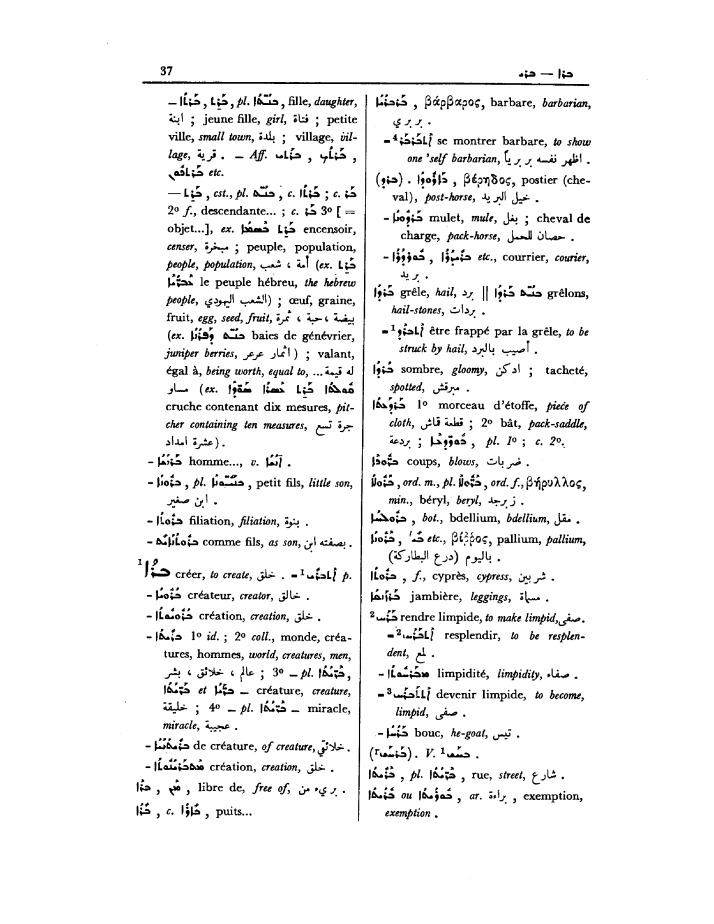 37 ܒܪܐ — ܒܪܝ
— ܒܪܬܐ, ܒܪܬ, pl. ܒܢܬܐ, fille, daughter,
ابنة ; jeune fille, girl, فتاة ; petite
ville, small town, بلدة ; village, vil-
lage, قرية . — Aff. ܒܪܬܝ, ܒܪܬܟ,
etc.
— ܒܪܬ, cst., pl. ܒܢܬ, c. ܒܪܬܐ ; c. ܒܪ
2º f., descendante... ; c. ܒܪ 3º [ =
objet...], ex. ܒܪܬ ܒܣܡܐ encensoir,
censer, مبخرة ; peuple, population,
people, population, أمة ، شعب (ex. ܒܪܬ
ܥܒܪܝܐ le peuple hébreu, the hebrew
people, الشعب اليهودي) ; œuf, graine,
fruit, egg, seed, fruit, بيضة ، حبة ، ثمرة
(ex. ܒܢܬ baies de génévrier,
juniper berries, اثمار عرعر) ; valant,
égal à, being worth, equal to, ... له قيمة
مساو (ex. ܒܪܬ ܥܣܪܐ
cruche contenant dix mesures, pit-
cher containing ten measures, جرة تسع
عشرة امداد).
- ܒܪܢܫܐ homme..., v. ܐܢܫܐ .
- ܒܪܘܢܐ, pl. ܒܢܘܢܐ, petit fils, little son,
ابن صغير .
- ܒܪܘܬܐ filiation, filiation, بنوة .
- ܒܪܘܢܐܝܬ comme fils, as son, بصفته ابن.
ܒܪܐ¹ créer, to create, خلق . = ¹ܐܬܒܪܝ p.
- ܒܪܘܝܐ créateur, creator, خالق .
- ܒܪܘܝܘܬܐ création, creation, خلق .
- ܒܪܝܬܐ 1º id. ; 2º coll., monde, créa-
tures, hommes, world, creatures, men,
عالم ، خلائق ، بشر ; 3º — pl. ܒܪ̈ܝܬܐ,
ܒܪ̈ܝܬܐ et ܒܪܝܐ — créature, creature,
خليقة ; 4º — pl. ܒܪ̈ܝܬܐ — miracle,
miracle, عجيبة .
- ܒܪܝܬܢܝܐ de créature, of creature, خلائقي .
- création, creation, خلق .
ܒܪܐ, ܡܢ, libre de, free of, بريء من .
ܒܪܐ, c. ܒܐܪܐ, puits...
ܒܪܒܪܝܐ, βάρβαρος, barbare, barbarian,
بربري .
= ⁴ܐܬܒܪܒܪ se montrer barbare, to show
one 'self barbarian, اظهر نفسه بربرياً .
(ܒܪܕ). βέρηδος, postier (che-
val), post-horse, خيل البريد .
- ܒܪܕܘܢܐ mulet, mule, بغل ; cheval de
charge, pack-horse, حصان للحمل .
- etc., courrier, courier,
بريد .
ܒܪܕܐ grêle, hail, برد || ܒܢܬ ܒܪܕܐ grêlons,
hail-stones, بردات .
= ¹ܐܬܒܪܕ être frappé par la grêle, to be
struck by hail, أصيب بالبرد .
ܒܪܕܐ sombre, gloomy, ادكن ; tacheté,
spotted, مبرقش .
ܒܪܕܥܬܐ 1º morceau d'étoffe, piece of
cloth, قطعة قاش ; 2º bât, pack-saddle,
بردعة ; pl. 1º ; c. 2º.
coups, blows, ضربات .
ܒܪܘܠܐ, ord. m., pl. ܒܪ̈ܘܠܐ, ord. f., βήρυλλος,
min., béryl, beryl, زبرجد .
ܒܪܘܠܚܐ, bot., bdellium, bdellium, مقل .
etc., pallium, pallium,
باليوم (درع البطاركة) .
ܒܪܘܬܐ, f., cyprès, cypress, شربين .
jambière, leggings, مسماة .
²ܒܪܝ rendre limpide, to make limpid, صفى.
= ²ܐܬܒܪܝ resplendir, to be resplen-
dent, لمع .
- limpidité, limpidity, صفاء .
= ³ devenir limpide, to become,
limpid, صفى .
- ܒܪܚܐ bouc, he-goat, تيس .
V. ¹
ܒܪܝܬܐ, pl. ܒܪ̈ܝܬܐ, rue, street, شارع .
ou , ar. براءة , exemption,
exemption .